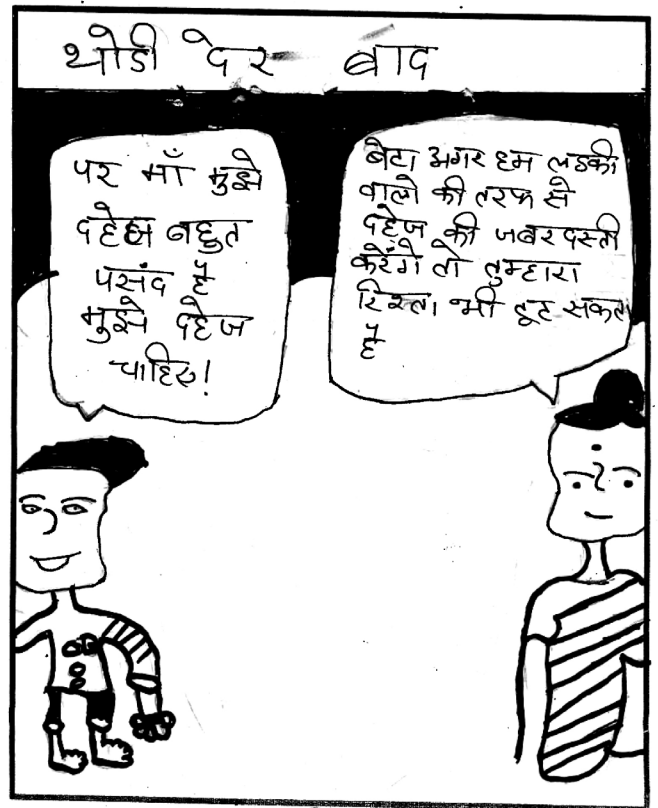 थोडी देर बाद
पर माँ मुझे
दहेज बहुत
पसंद है
मुझे दहेज
चाहिए!
बेटा अगर हम लडकी
वालो की तरफ से
दहेज की जबरदस्ती
करेंगे तो तुम्हारा
रिश्ता भी टूट सकता
है